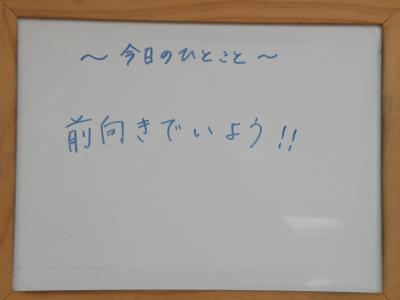 ～今日のひとこと～
前向きでいよう!!